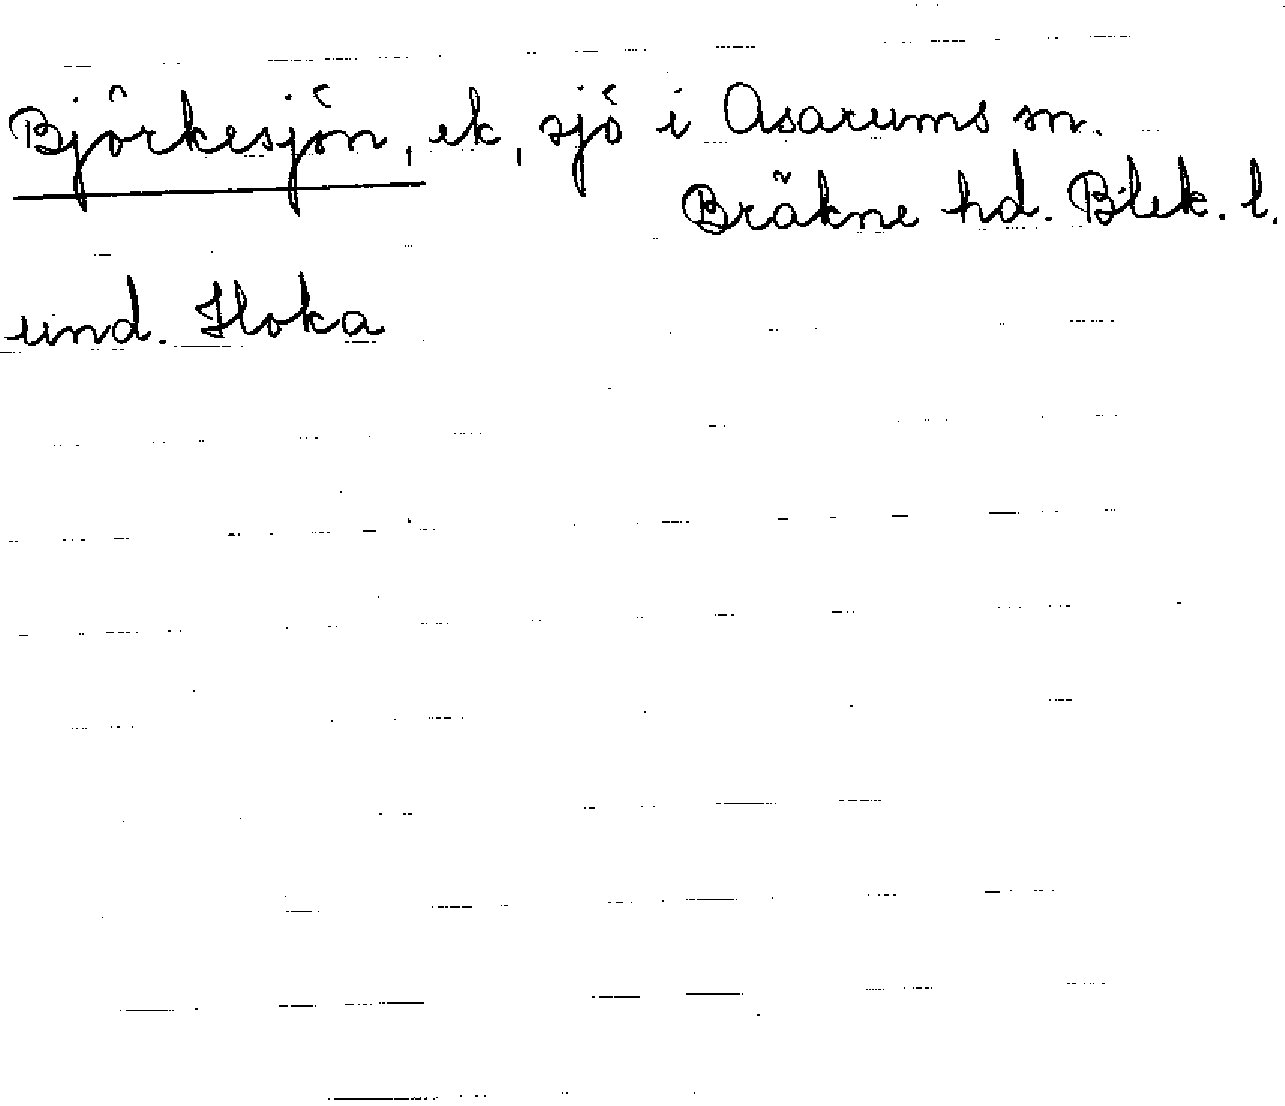 Björkesjön, ek, sjö i Asarums sn.
Bräkne hd. Blek. l.
und. Hoka